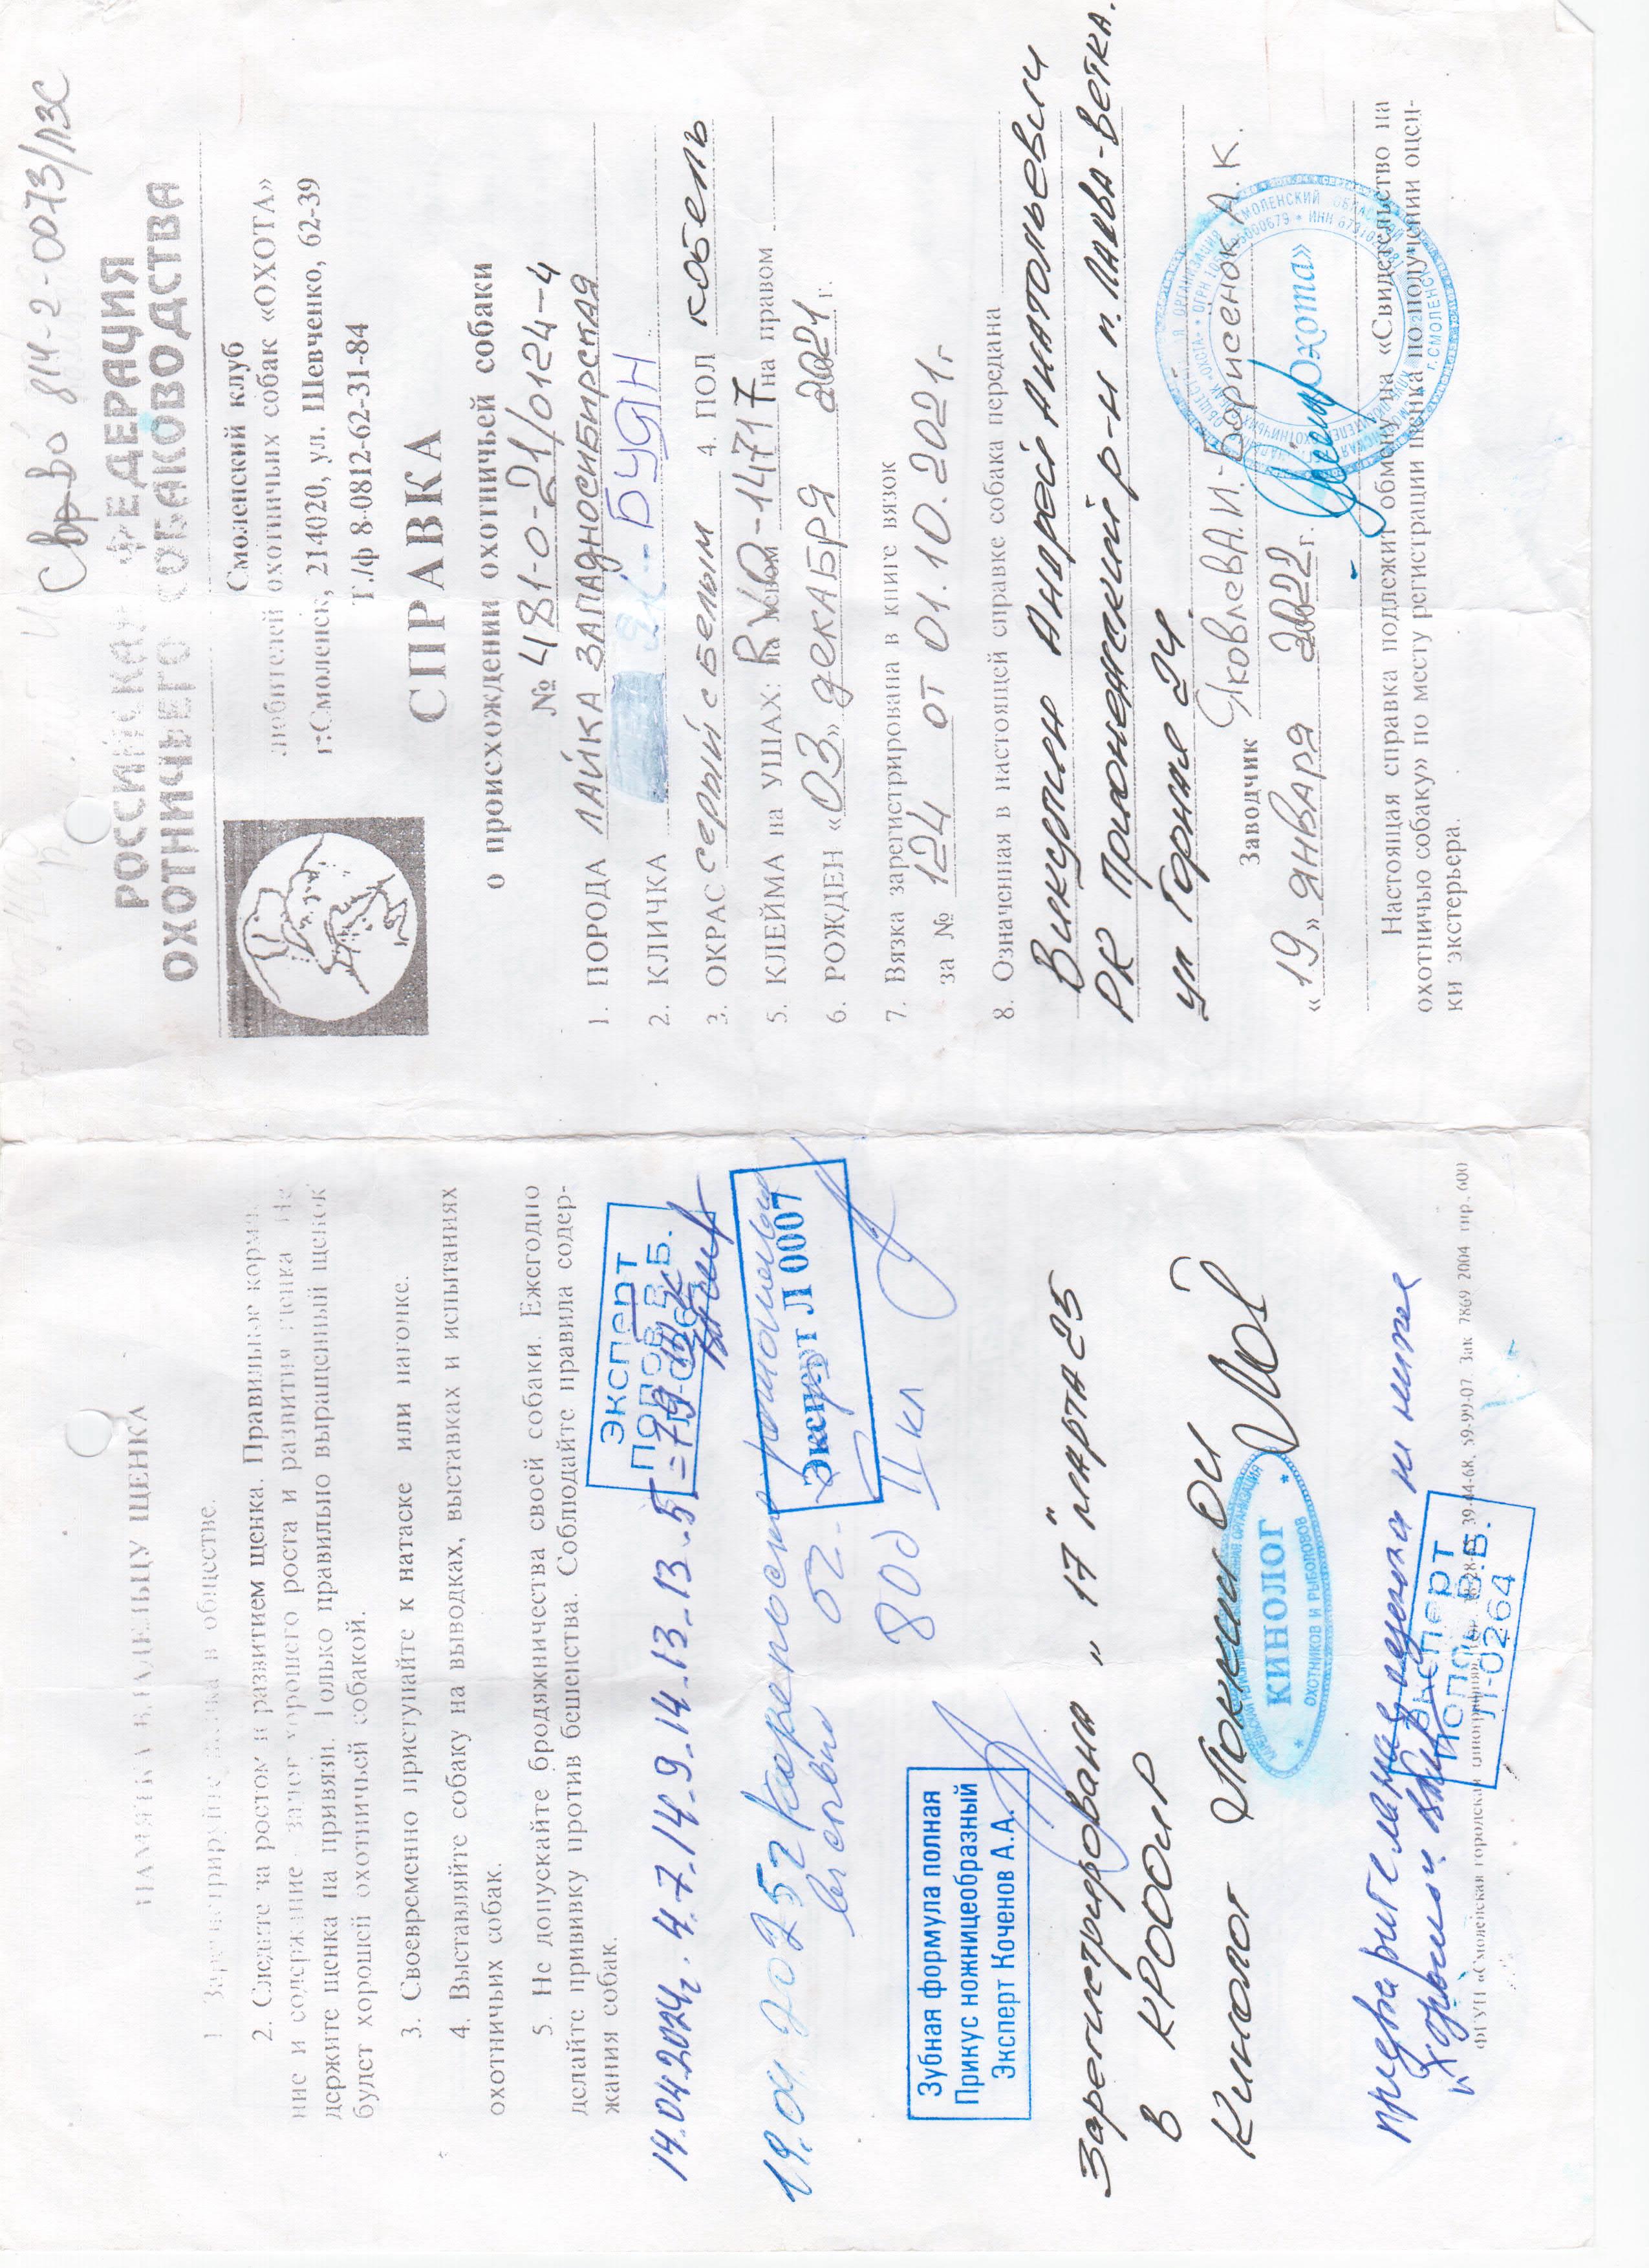 Св-во 814-2-0073/ЛЗС
РОССИЙСКАЯ ФЕДЕРАЦИЯ
ОХОТНИЧЬЕГО СОБАКОВОДСТВА
Смоленский клуб
любителей охотничьих собак «ОХОТА»
г.Смоленск, 214020, ул. Шевченко, 62-39
Т./ф 8-0812-62-31-84
СПРАВКА
о происхождении охотничьей собаки
№ 481-0-21/0124-4
1. ПОРОДА ЛАЙКА ЗАПАДНОСИБИРСКАЯ
2. КЛИЧКА БУЯН
3. ОКРАС серый с белым 4. ПОЛ кобель
5. КЛЕЙМА на УШАХ: на левом RVD-14717 на правом
6. РОЖДЕН «03» декАБРЯ 2021 г.
7. Вязка зарегистрирована в книге вязок
за № 124 от 01.10.2021г.
8. Означенная в настоящей справке собака передана
Виксулин Андрей Анатольевич
РК Прионежский р-н п. Пайва-Ветка.
ул Горная 24
Заводчик Яковлев А.И.-Борисенок А.К.
«19» января 2022 г.
«охота»
Настоящая справка подлежит обмону на «Свидетельство на
охотничью собаку» по месту регистрации щенка по получении оцен-
ки экстерьера.
ПАМЯТКА ВЛАДЕЛЬЦУ ЩЕНКА
1. Зарегистрируйте щенка в обществе.
2. Следите за ростом и развитием щенка. Правильное кормле-
ние и содержание - залог хорошего роста и развития щенка. Не
держите щенка на привязи. Только правильно выращенный щенок
будет хорошей охотничьей собакой.
3. Своевременно приступайте к натаске или нагонке.
4. Выставляйте собаку на выводках, выставках и испытаниях
охотничьих собак.
5. Не допускайте бродяжничества своей собаки. Ежегодно
делайте прививку против бешенства. Соблюдайте правила содер-
жания собак.
14.04.2024г. 4-7-14-9-14-13-13-5=79 III
Эксперт
Попов В.Б.
Эксперт Л 0007
80д II кл
Зубная формула полная
Прикус ножницеобразный
Эксперт Коченов А.А.
Зарегистрирована "17" марта 25
в КРООиР
Кинолог
КИНОЛОГ
ОХОТНИКОВ И РЫБОЛОВОВ
Эксперт
Попов В.Б.
Л-0264
ФГУП «Смоленская городская типография» 59-99-07. Зак 7869 2004 тир. 600